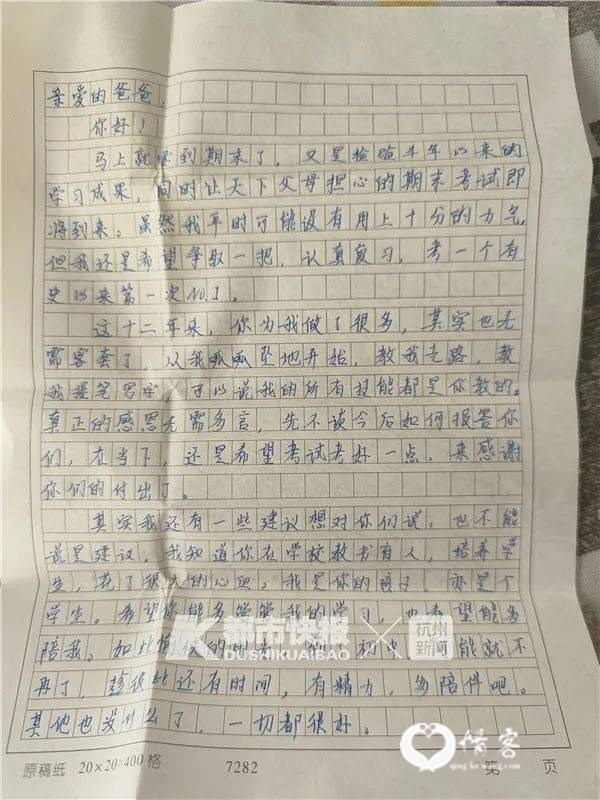 亲爱的爸爸：
你好！
马上就要到期末了，又是检验半年以来的
学习成果，同时让天下父母担心的期末考试即
将到来。虽然我平时可能没有用上十分的力气，
但我还是希望争取一把，认真复习，考一个有
史以来第一次NO.1。
这十二年来，你为我做了很多，其实也无
需客套了，从我呱呱坠地开始，教我走路，教
我握笔写字，可以说我的所有技能都是你教的。
真正的感恩无需多言，先不谈今后如何报答你
们，在当下，还是希望考试考好一点，来感谢
你们的付出了。
其实我还有一些建议想对你们说，也不能
说是建议。我知道你在学校教书育人，培养学
生，花了很大的心血。我是你的孩子，亦是个
学生。希望你能多管管我的学习，也希望能多
陪我。如此 的时 初 能就不
再了，趁彼此还有时间，有精力，多陪伴吧。
其他也没什么了，一切都很好。
都市快报
DUSHIKUAIBAO
杭州
新闻
原稿纸 20×20=400格 7282 第 页
情客
qing.heiqing.com